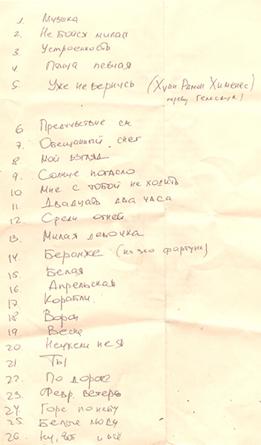 1. Музыка
2. Не бойся милая
3. Устроенность
4. певная
5. Уже не вернусь (Хуан Рамон Хименес)
перев. Гелескула)
6 Предчувствие
7. Обещанный снег
8 Мой взгляд
9. Солнце погасло
10 Мне с тобой не ходить
11 Двадцать два часа
12. Среди огней
13. Милая девочка
14 Беранже (из-за фартуни)
15. Белая
16 Апрельская
17 Корабли
18 Ворон
19. Весна
20. Неужели не я
21 Ты
22. По дороге
23. Февр. ветер
24. Горе по небу
25. Белые люди
26. Ну, вот и всё